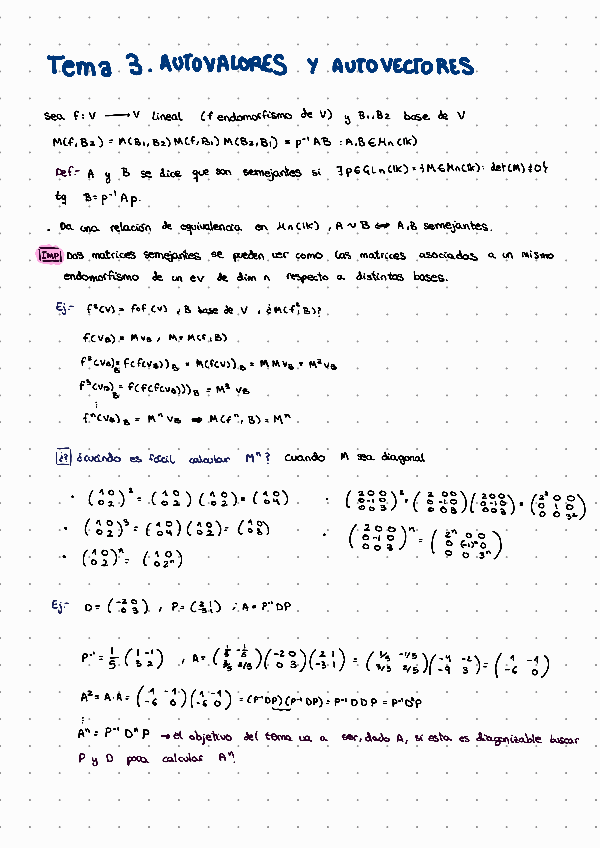 Tema 3. AUTOVALORES Y AUTOVECTORES
Sea f: V ⟶ V lineal (f endomorfismo de V) y B₁,B₂ base de V
M(f,B₂) = M(B₁,B₂) M(f,B₁) M(B₂,B₁) = P⁻¹AB : A,B∈Mn(lK)
Def.- A y B se dice que son semejantes si ∃P∈GLn(lK) = {M∈Mn(lK): det(M)≠0}
tq B = P⁻¹Ap.
· Da una relación de equivalencia en Mn(lK), A∼B ⟺ A,B semejantes.
IMP Dos matrices semejantes se pueden ver como las matrices asociadas a un mismo
endomorfismo de un ev de dim n respecto a distintas bases.
Ej.- f²(v) = fof(v) , B base de V , ¿M(f²,B)?
f(vB) = MvB , M = M(f,B)
f²(vB)B = f(f(vB))B = M(f(v))B = M M vB = M²vB
f³(vB)B = f(f(f(vB)))B = M³ vB
⋮
fⁿ(vB)B = Mⁿ vB ⟹ M(fⁿ,B) = Mⁿ
¿? ¿cuándo es fácil calcular Mⁿ? Cuando M sea diagonal
· (1 0 / 0 2)² = (1 0 / 0 2)(1 0 / 0 2) = (1 0 / 0 4) · (2 0 0 / 0 -1 0 / 0 0 3)² = (2 0 0 / 0 -1 0 / 0 0 3)(2 0 0 / 0 -1 0 / 0 0 3) = (2² 0 0 / 0 1 0 / 0 0 3²)
· (1 0 / 0 2)³ = (1 0 / 0 4)(1 0 / 0 2) = (1 0 / 0 8) · (2 0 0 / 0 -1 0 / 0 0 3)ⁿ = (2ⁿ 0 0 / 0 (-1)ⁿ 0 / 0 0 3ⁿ)
· (1 0 / 0 2)ⁿ = (1 0 / 0 2ⁿ)
Ej.- D = (-2 0 / 0 3) , P = (2 1 / -3 1) ; A = P⁻¹DP
P⁻¹ = 1/5 (1 -1 / 3 2) , A = (1/5 -1/5 / 3/5 2/5)(-2 0 / 0 3)(2 1 / -3 1) = (1/5 -1/5 / 3/5 2/5)(-4 -2 / -9 3) = (1 -1 / -6 0)
A² = A·A = (1 -1 / -6 0)(1 -1 / -6 0) = (P⁻¹DP)(P⁻¹DP) = P⁻¹DDP = P⁻¹D²P
⋮
Aⁿ = P⁻¹DⁿP → el objetivo del tema va a ser, dado A, si esta es diagonizable buscar
P y D para calcular Aⁿ.